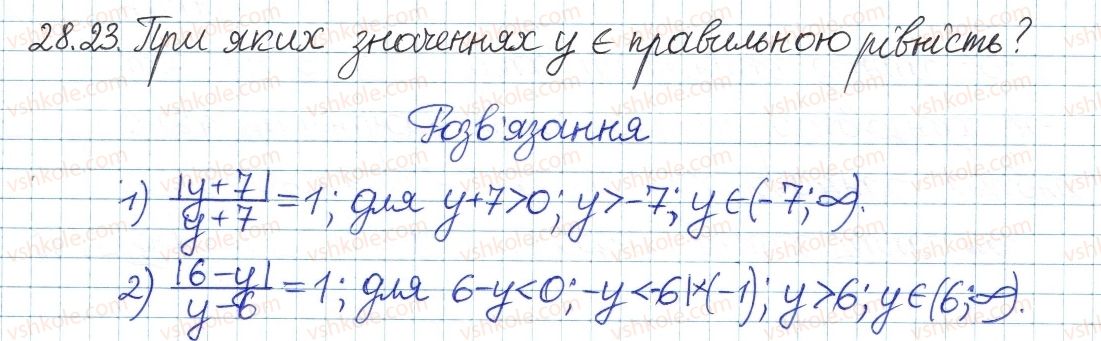 28.23. При яких значеннях y є правильною рівність?
Розв'язання
1) |y+7|/y+7 = 1; для y+7>0; y>-7; y∈(-7;∞).
2) |6-y|/y-6 = 1; для 6-y<0; -y<-6|×(-1); y>6; y∈(6;∞).